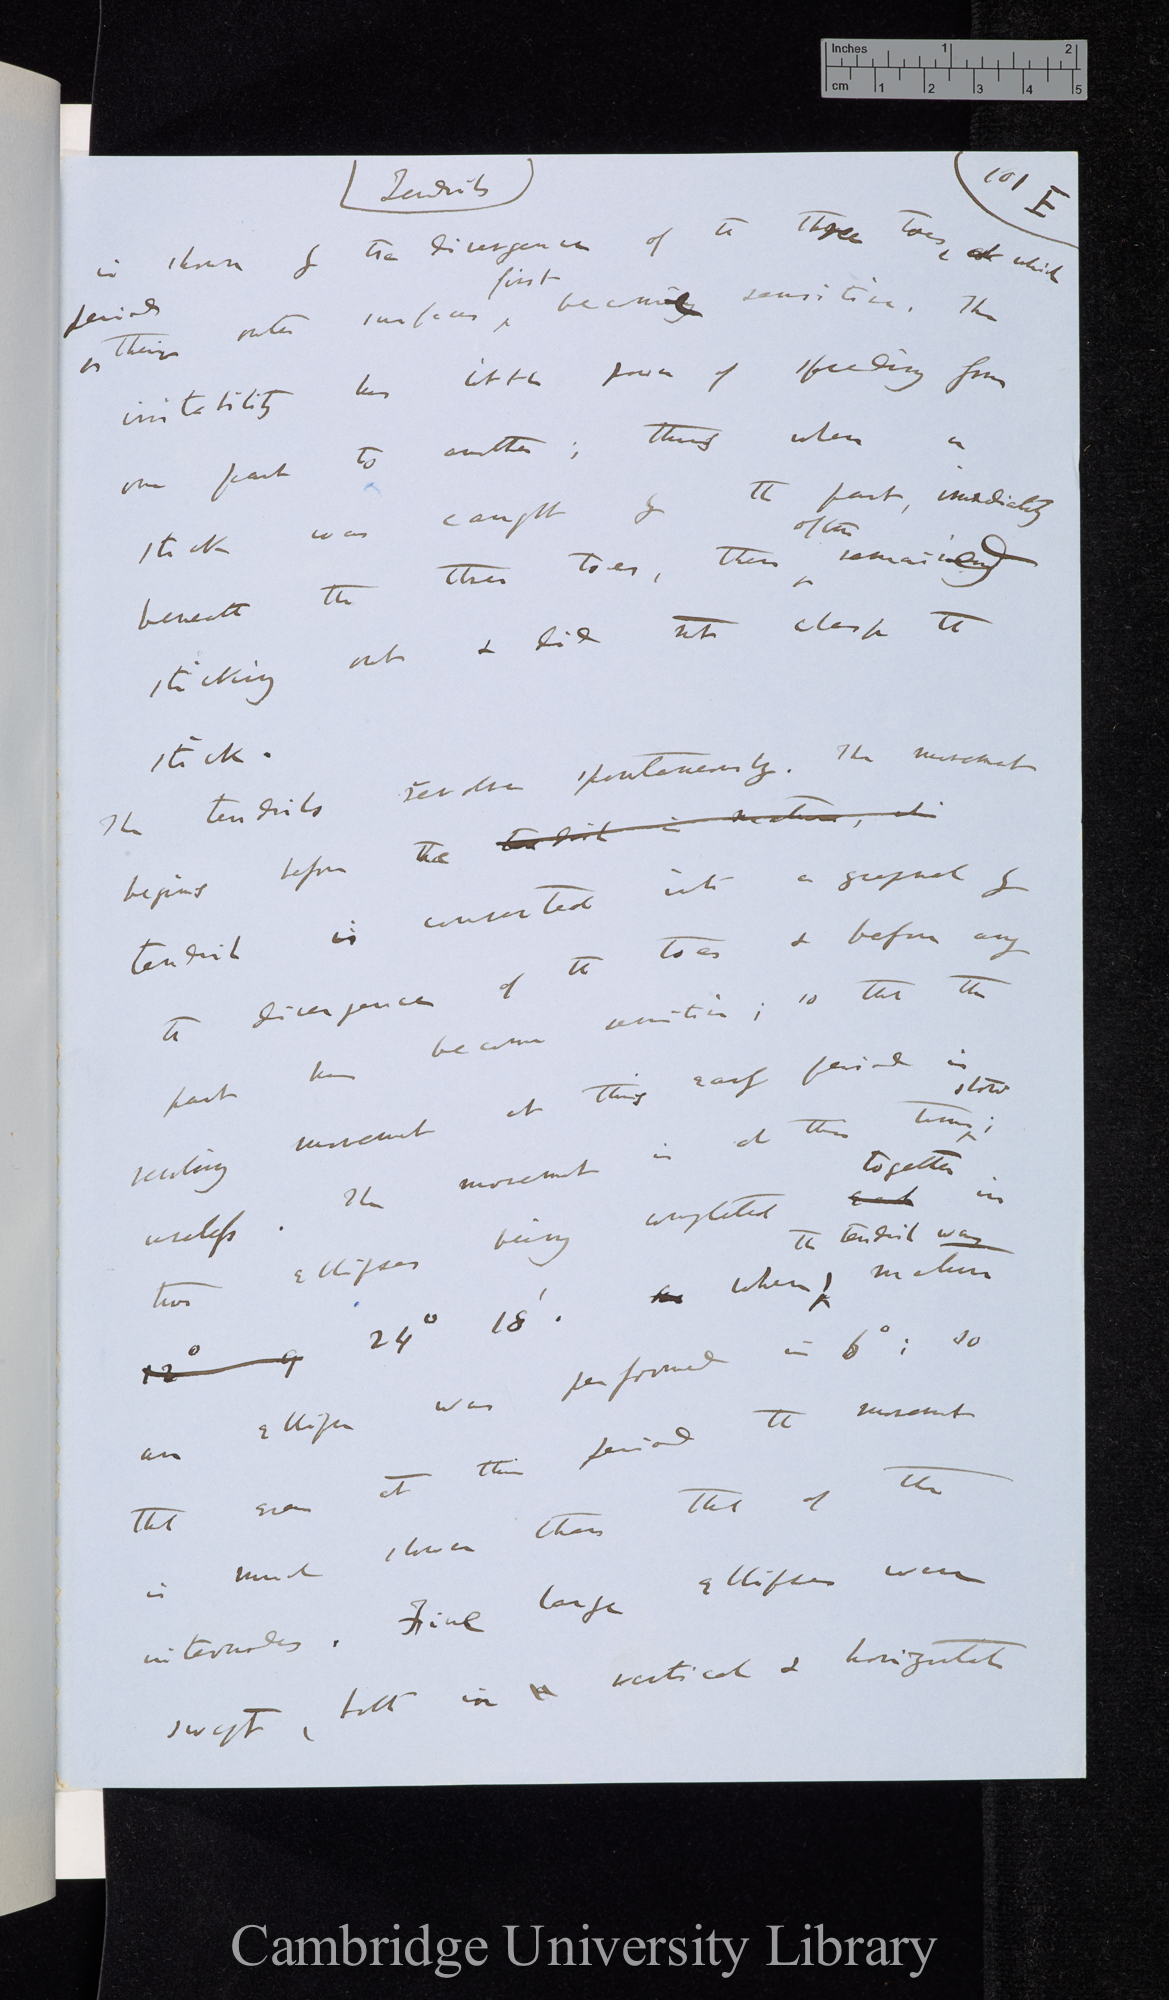 Inches 1 2
cm 1 2 3 4 5
Tendrils
101 E
is shown by the divergence of the three toes, at which
period
first
as their outer surfaces becoming sensitive. The
irritability has little power of spreading from
one part to another; thus when a
stick was caught by the part, immediately
often
beneath the three toes, these remained
sticking out & did not clasp the
stick.
The tendrils revolve spontaneously. The movement
begins before the tendril is mature,
tendril is converted into a grapnel by
the divergence of the toes & before any
part has become sensitive; so that the
revolving movement at this early period is
slow
useless. The movement is at this time;
together
two ellipses being completed in
the tendril was
12° 9 24° 18'. when mature
an ellipse was performed in 6°; so
that even at this period the movement
is much slower than that of the
internodes. Fine large ellipses were
swept, both in a vertical & horizontal
Cambridge University Library